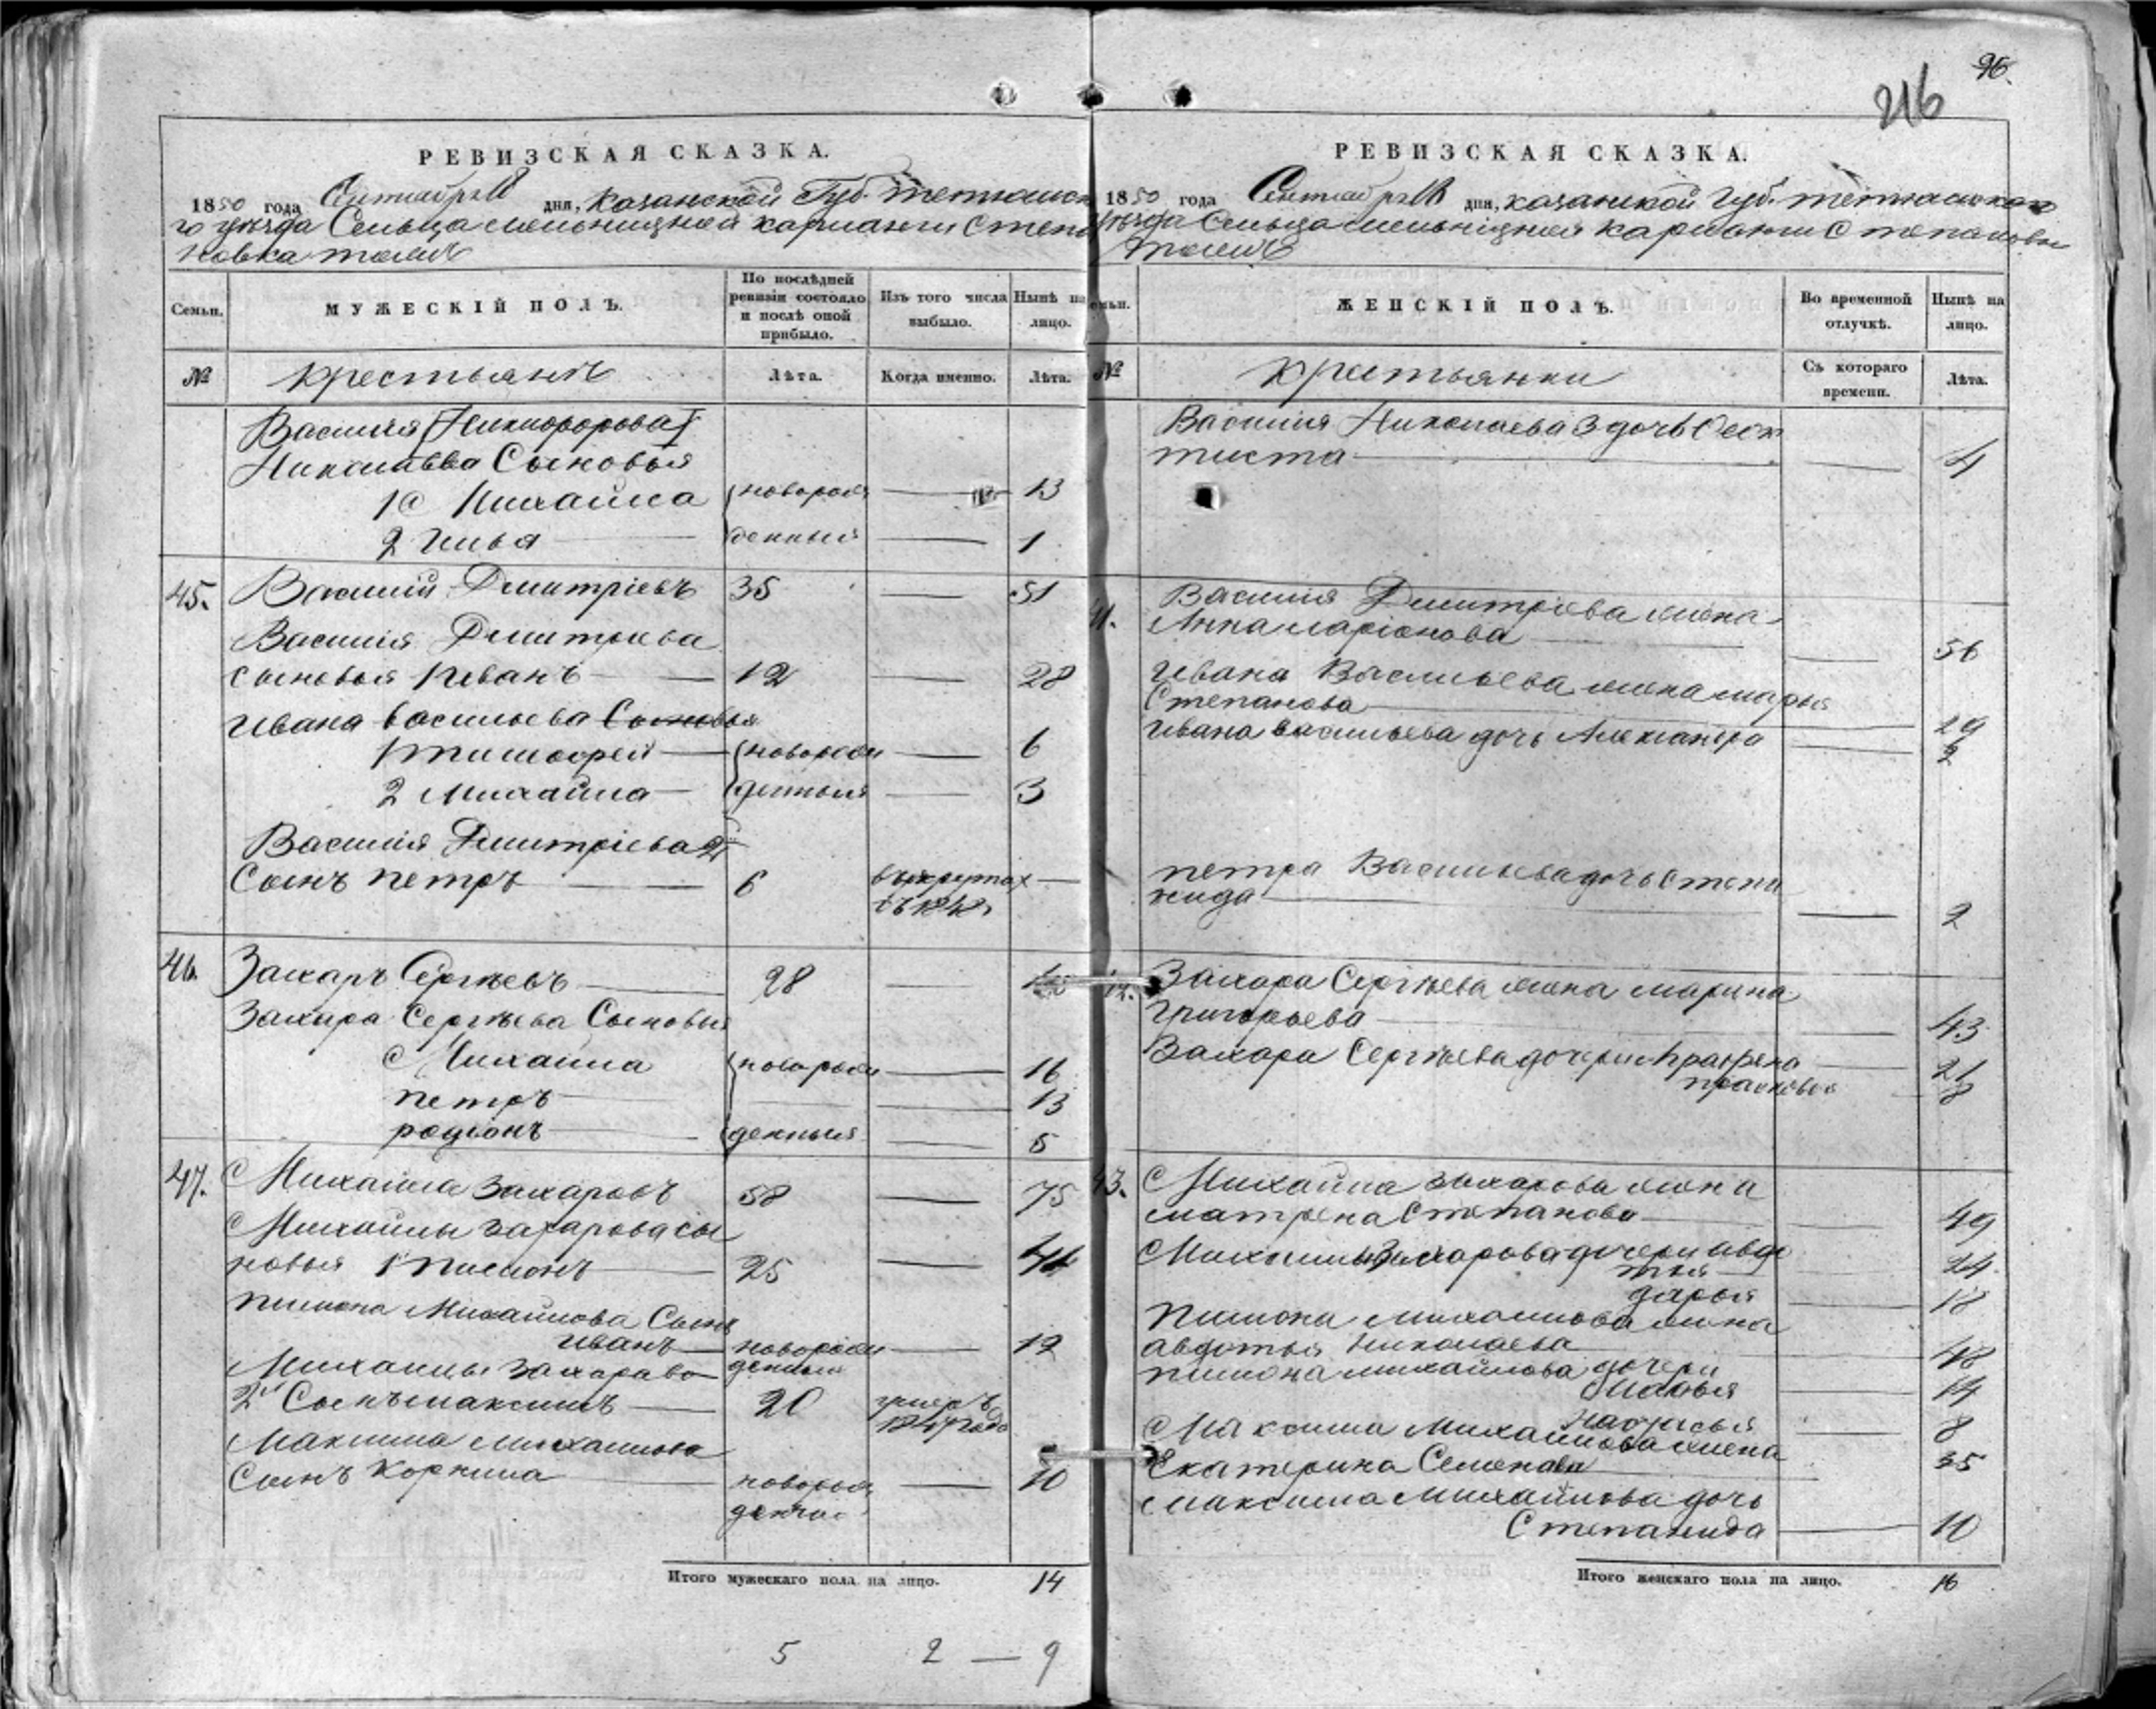 96.
216
РЕВИЗСКАЯ СКАЗКА.
1850 года Сентября 18 дня, Казанской Губ. Тетюшск
го уѣзда Сельца мельнишной карманги Степа
новка тожъ
Семьи.
МУЖЕСКІЙ ПОЛЪ.
По послѣдней ревизіи состояло и послѣ оной прибыло.
Изъ того числа выбыло.
Нынѣ на лицо.
№
крестьянъ
Лѣта.
Когда именно.
Лѣта.
Василія [Никифорова]
Николаева Сыновья
1й Михайла новорож 13
2 Илья денныя 1
45. Василий Дмитріевъ 35 51
Василія Дмитриева
сыновья Иванъ 12 28
Ивана васильева Сыновья
1 тимофей новорож 6
2 Михайла денныя 3
Василія Дмитріева 2й
Сынъ петръ 6 въ рекрутах
46. Захаръ Сергѣевъ 28
Захара Сергѣева Сыновья
Михаила новорож 16
петръ 13
родіонъ денныя 5
47. Михаила Захаровъ 58 75
Михайлы захарова сы
новья 1 пимонъ 25
пимона Михайлова Сынъ
иванъ новорож 12
Михаилы Захарова денныя
2й Сынъ максимъ 20
Максима михаилова
Сынъ Корнила новорож 10
денной
Итого мужескаго пола на лицо. 14
5 2 — 9
РЕВИЗСКАЯ СКАЗКА.
1850 года Сентября 18 дня, казанской Губ. тетюшскаго
уѣзда Сельца мельнишной карманги Степановка
тожъ
Семьи.
ЖЕНСКІЙ ПОЛЪ.
Во временной отлучкѣ.
Нынѣ на лицо.
№
крестьянки
Съ котораго времени.
Лѣта.
Василия Николаева 3 дочь Феок
тиста 4
41. Василия Дмитріева жена
Анна ларіонова 56
Ивана Васильева жена марья
Степанова 29
Ивана васильева дочь Александра
петра Васильева дочь Степа
нида 2
42. Захара Сергѣева жена марина
Григорьева 43
Захара Сергѣева дочери Аграфена 21
прасковья 8
43. Михайла захарова жена
матрена Степанова 49
Михайлы Захарова дочери авдо
тья 24
дарья 18
пимона михаилова жена
авдотья Николаева 48
пимона михайлова дочери
Марья 14
настасья 8
Максима Михайлова жена
Екатерина Семенова 35
максима Михайлова дочь
Степанида 10
Итого женскаго пола на лицо. 16